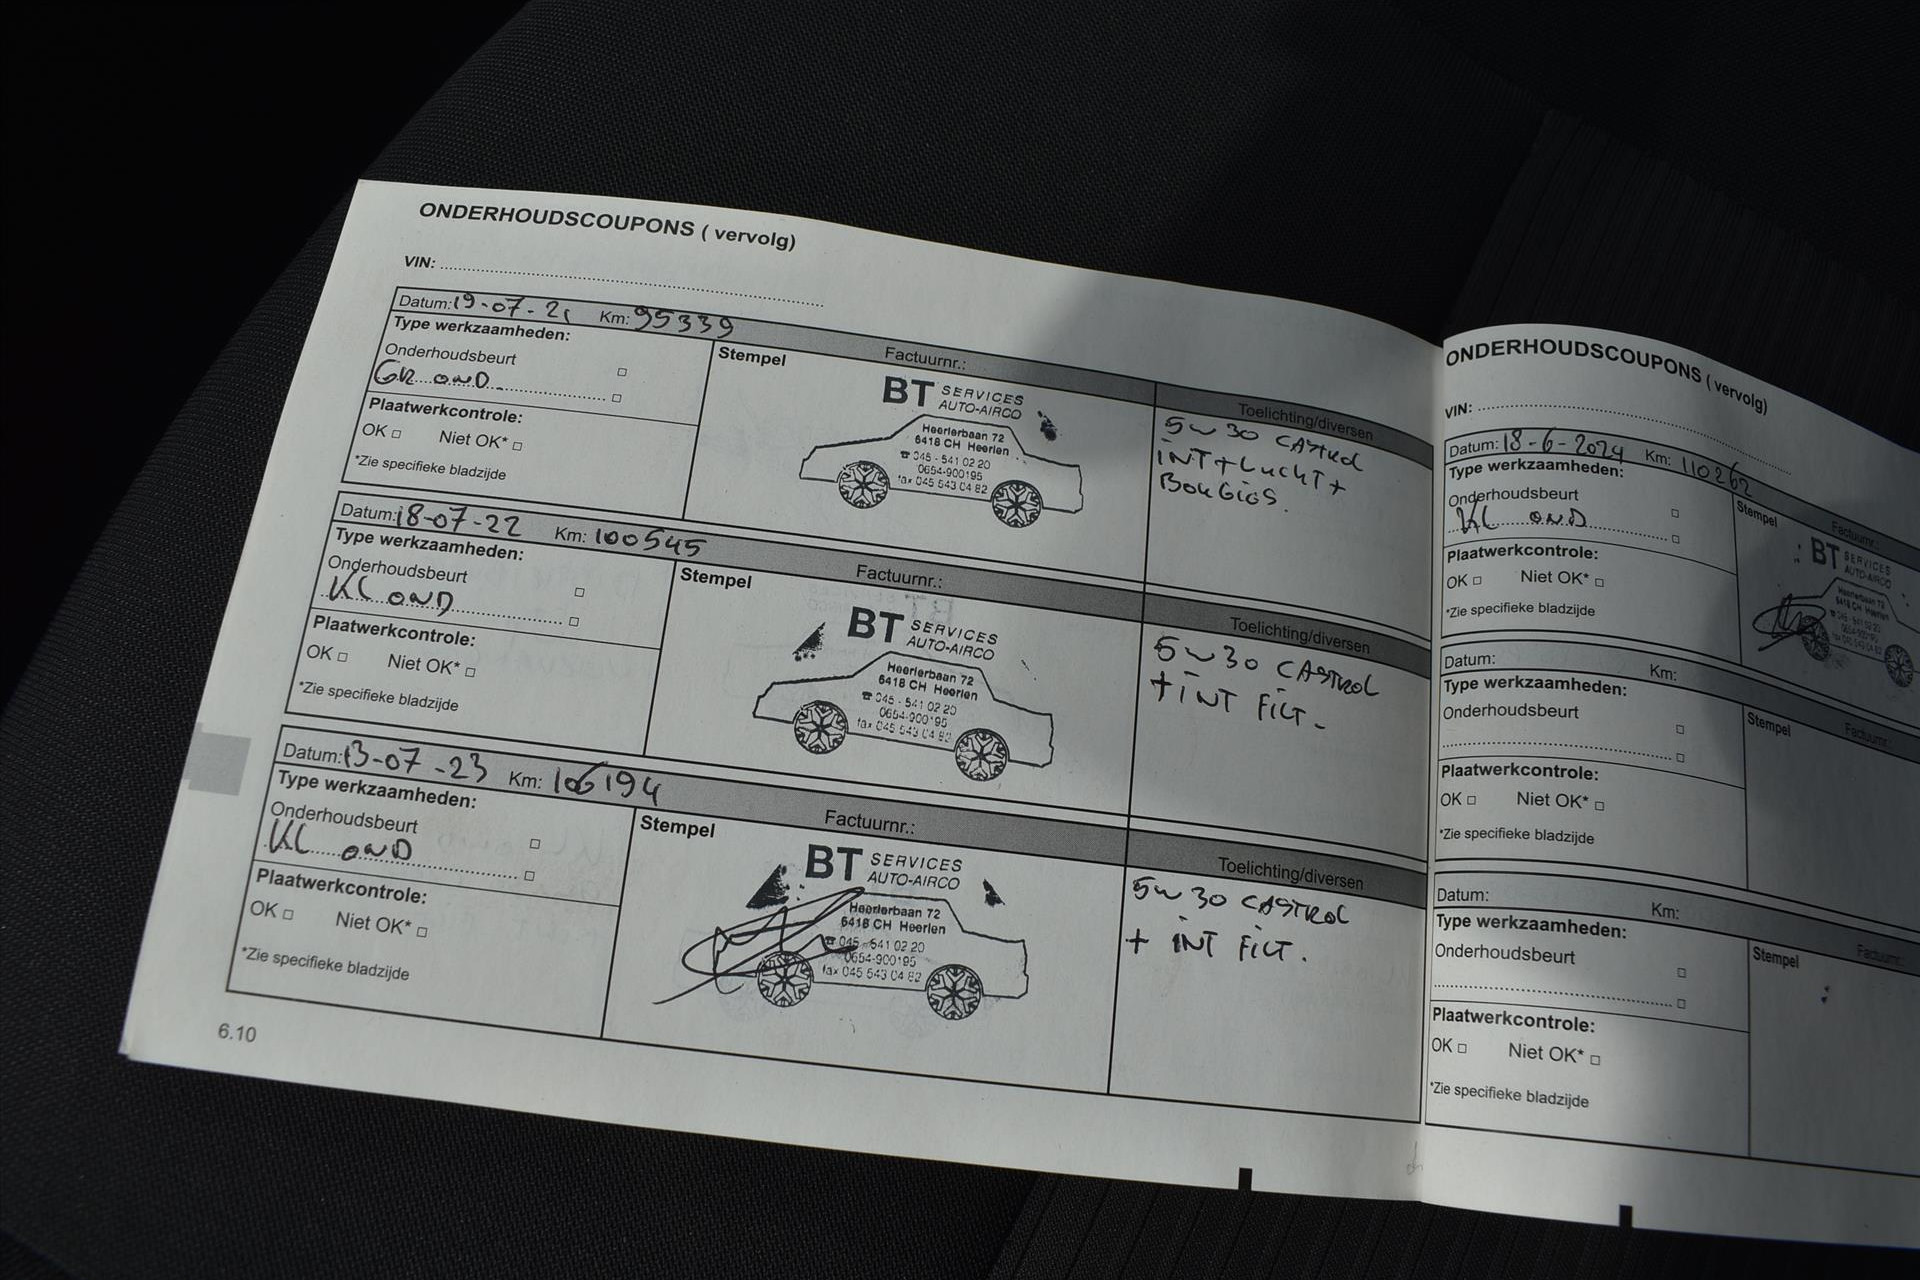 ONDERHOUDSCOUPONS ( vervolg)
VIN:
Datum: 19-07-21 Km: 95339
Factuurnr.:
Type werkzaamheden:
Onderhoudsbeurt
GR OND.
Plaatwerkcontrole:
OK □ Niet OK* □
*Zie specifieke bladzijde
Stempel
BT SERVICES
AUTO-AIRCO
Heerlerbaan 72
6418 CH Heerlen
☎ 045 - 541 02 20
0654-900195
fax 045 543 04 82
Toelichting/diversen
5W30 CASTROL
INT + LUCHT +
BOUGIES.
Datum: 18-07-22 Km: 100545
Factuurnr.:
Type werkzaamheden:
Onderhoudsbeurt
KL OND
Plaatwerkcontrole:
OK □ Niet OK* □
*Zie specifieke bladzijde
Stempel
BT SERVICES
AUTO-AIRCO
Heerlerbaan 72
6418 CH Heerlen
☎ 045 - 541 02 20
0654-900195
fax 045 543 04 82
Toelichting/diversen
5W30 CASTROL
+ INT FILT -
Datum: 13-07-23 Km: 106194
Factuurnr.:
Type werkzaamheden:
Onderhoudsbeurt
KL OND
Plaatwerkcontrole:
OK □ Niet OK* □
*Zie specifieke bladzijde
Stempel
BT SERVICES
AUTO-AIRCO
Heerlerbaan 72
6418 CH Heerlen
☎ 045 - 541 02 20
0654-900195
fax 045 543 04 82
Toelichting/diversen
5W30 CASTROL
+ INT FILT.
6.10
ONDERHOUDSCOUPONS ( vervolg)
VIN:
Datum: 18-6-2024 Km: 110262
Factuurnr.:
Type werkzaamheden:
Onderhoudsbeurt
KL OND
Plaatwerkcontrole:
OK □ Niet OK* □
*Zie specifieke bladzijde
Stempel
BT SERVICES
AUTO-AIRCO
Heerlerbaan 72
6418 CH Heerlen
☎ 045 - 541 02 20
0654-900195
fax 045 543 04 82
Datum: Km:
Factuurnr.:
Type werkzaamheden:
Onderhoudsbeurt
Plaatwerkcontrole:
OK □ Niet OK* □
*Zie specifieke bladzijde
Stempel
Datum: Km:
Factuurnr.:
Type werkzaamheden:
Onderhoudsbeurt
Plaatwerkcontrole:
OK □ Niet OK* □
*Zie specifieke bladzijde
Stempel